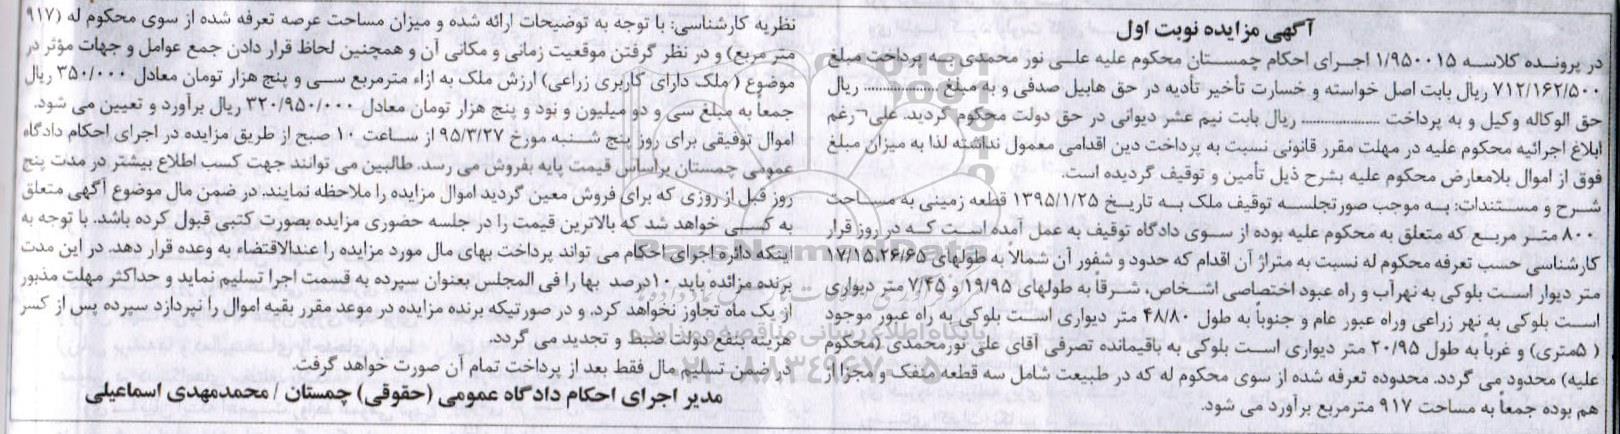 آگهی مزایده نوبت اول
در پرونده کلاسه ۱/۹۵۰۰۱۵ اجرای احکام چمستان محکوم علیه علی نور محمدی به پرداخت مبلغ
۷۱۲/۱۶۲/۵۰۰ ریال بابت اصل خواسته و خسارت تأخیر تأدیه در حق هابیل صدفی و به مبلغ .................. ریال
حق الوکاله وکیل و به پرداخت .................. ریال بابت نیم عشر دیوانی در حق دولت محکوم گردید. علی رغم
ابلاغ اجرائیه محکوم علیه در مهلت مقرر قانونی نسبت به پرداخت دین اقدامی معمول نداشته لذا به میزان مبلغ
فوق از اموال بلامعارض محکوم علیه بشرح ذیل تأمین و توقیف گردیده است.
شرح و مستندات: به موجب صورتجلسه توقیف ملک به تاریخ ۱۳۹۵/۱/۲۵ قطعه زمینی به مساحت
۸۰۰ متر مربع که متعلق به محکوم علیه بوده از سوی دادگاه توقیف به عمل آمده است که در روز قرار
کارشناسی حسب تعرفه محکوم له نسبت به متراژ آن اقدام که حدود و شفور آن شمالاً به طولهای ۱۷/۱۵،۲۶/۶۵
متر دیوار است بلوکی به نهرآب و راه عبود اختصاصی اشخاص، شرقاً به طولهای ۱۹/۹۵ و ۷/۴۵ متر دیواری
است بلوکی به نهر زراعی وراه عبور عام و جنوباً به طول ۴۸/۸۰ متر دیواری است بلوکی به راه عبور موجود
( ۵متری) و غرباً به طول ۲۰/۹۵ متر دیواری است بلوکی به باقیمانده تصرفی آقای علی نورمحمدی (محکوم
علیه) محدود می گردد. محدوده تعرفه شده از سوی محکوم له که در طبیعت شامل سه قطعه منفک و مجزا از
هم بوده جمعاً به مساحت ۹۱۷ مترمربع برآورد می شود.
نظریه کارشناسی: با توجه به توضیحات ارائه شده و میزان مساحت عرصه تعرفه شده از سوی محکوم له (۹۱۷
متر مربع) و در نظر گرفتن موقعیت زمانی و مکانی آن و همچنین لحاظ قرار دادن جمع عوامل و جهات مؤثر در
موضوع ( ملک دارای کاربری زراعی) ارزش ملک به ازاء مترمربع سی و پنج هزار تومان معادل ۳۵۰/۰۰۰ ریال
جمعاً به مبلغ سی و دو میلیون و نود و پنج هزار تومان معادل ۳۲۰/۹۵۰/۰۰۰ ریال برآورد و تعیین می شود.
اموال توقیفی برای روز پنج شنبه مورخ ۹۵/۳/۲۷ از ساعت ۱۰ صبح از طریق مزایده در اجرای احکام دادگاه
عمومی چمستان براساس قیمت پایه بفروش می رسد. طالبین می توانند جهت کسب اطلاع بیشتر در مدت پنج
روز قبل از روزی که برای فروش معین گردید اموال مزایده را ملاحظه نمایند. در ضمن مال موضوع آگهی متعلق
به کسی خواهد شد که بالاترین قیمت را در جلسه حضوری مزایده بصورت کتبی قبول کرده باشد. با توجه به
اینکه دائره اجرای احکام می تواند پرداخت بهای مال مورد مزایده را عندالاقتضاء به وعده قرار دهد. در این مدت
برنده مزائده باید ۱۰درصد بها را فی المجلس بعنوان سپرده به قسمت اجرا تسلیم نماید و حداکثر مهلت مذبور
از یک ماه تجاوز نخواهد کرد. و در صورتیکه برنده مزایده در موعد مقرر بقیه اموال را نپردازد سپرده پس از کسر
هزینه بنفع دولت ضبط و تجدید می گردد.
در ضمن تسلیم مال فقط بعد از پرداخت تمام آن صورت خواهد گرفت.
مدیر اجرای احکام دادگاه عمومی (حقوقی) چمستان / محمدمهدی اسماعیلی
ParsNamadData
پایگاه اطلاع رسانی مناقصه و مزایده
۰۲۱-۸۸۳۴۹۶۷۰-۵